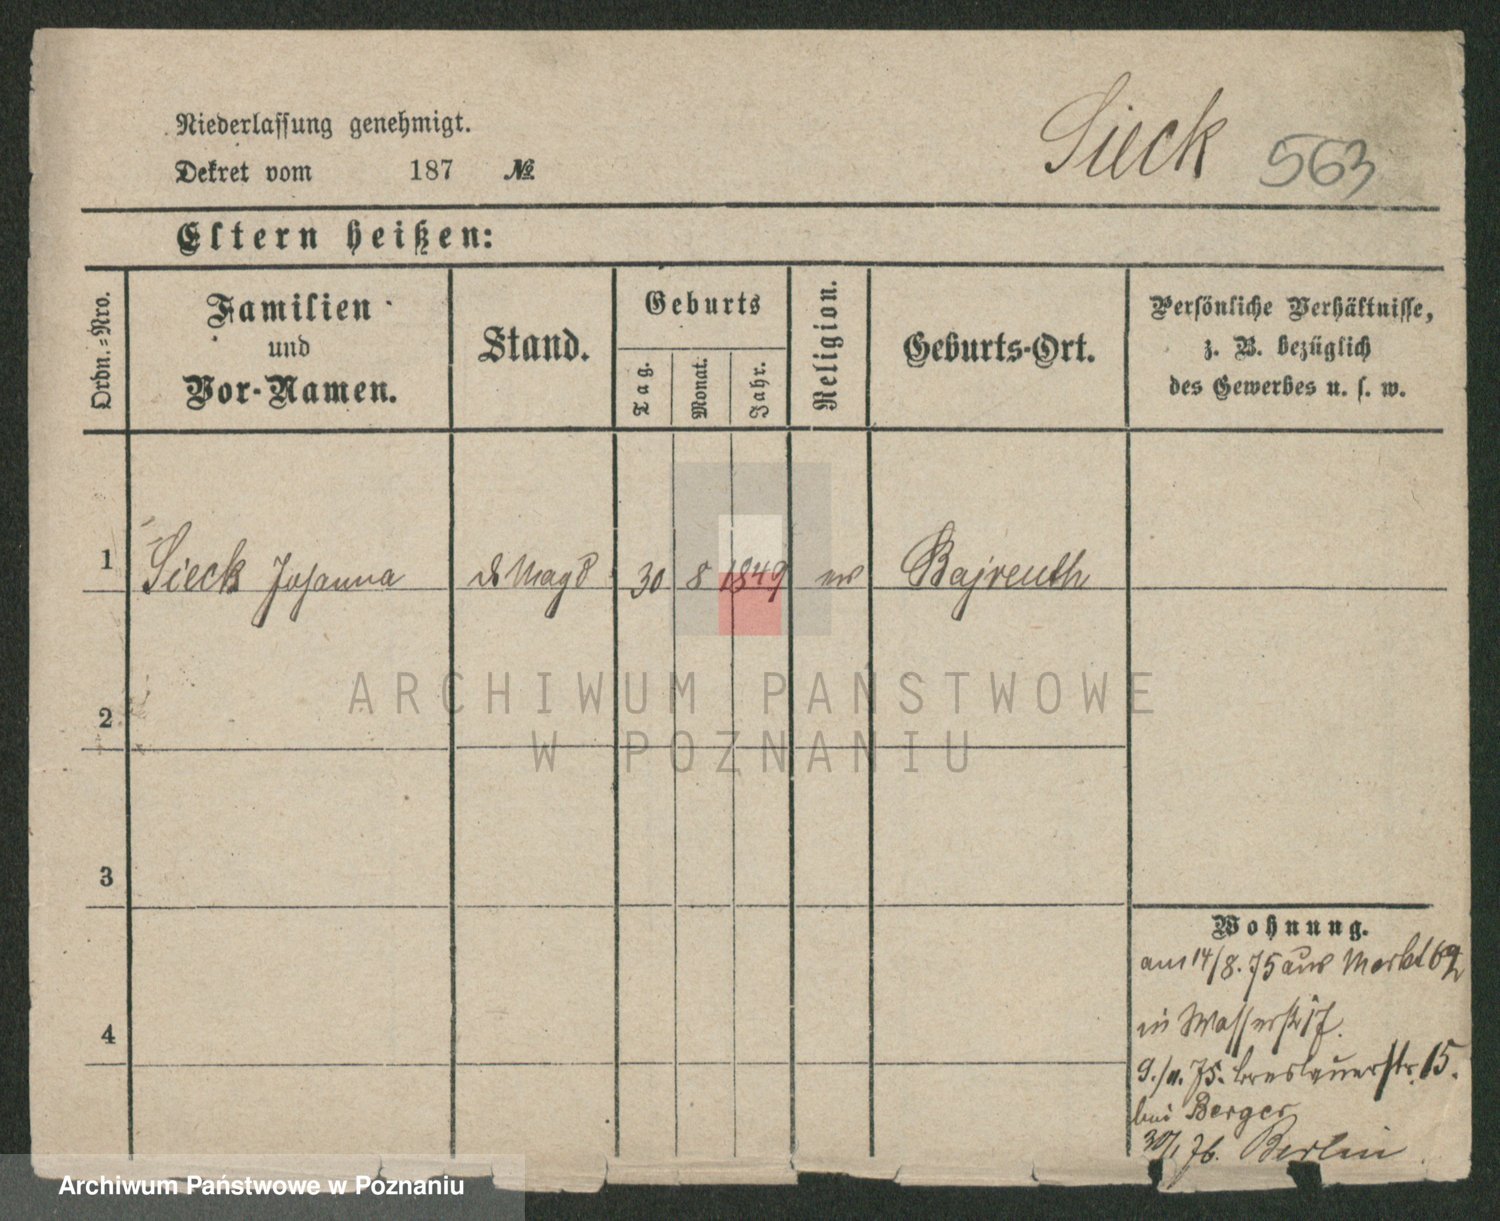 Niederlassung genehmigt.
Sieck 563
Dekret vom 187 №
Eltern heißen:
Ordn.=Nro.
Familien
und
Vor-Namen.
Stand.
Geburts
Tag.
Monat.
Jahr.
Religion.
Geburts-Ort.
Persönliche Verhältnisse,
z. B. bezüglich
des Gewerbes u. s. w.
1 Sieck Johanna Magd 30 8 1849 ev Bajreuth
2
3
4
Wohnung.
am 14/8. 75 aus Markt 69
in Wasserstr 17.
9./11. 75. Breslauerstr. 15.
bei Berger
30/1 76. Berlin
ARCHIWUM PAŃSTWOWE
W POZNANIU
Archiwum Państwowe w Poznaniu